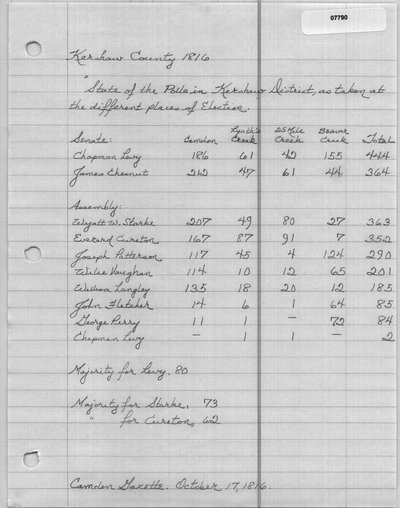 07790
Kershaw County 1816
"State of the Polls in Kershaw District, as taken at
the different places of Election.
Senate: Camden Lynch's Creek 25 Mile Creek Beaver Creek Total
Chapman Levy 186 61 42 155 444
James Chesnut 212 47 61 44 364
Assembly:
Wyatt W. Starke 207 49 80 27 363
Everard Cureton 167 87 91 7 352
Joseph Patterson 117 45 4 124 290
Willie Vaughan 114 10 12 65 201
William Langley 135 18 20 12 185
John Fletcher 14 6 1 64 85
George Perry 11 1 — 72 84
Chapman Levy — 1 1 — 2
Majority for Levy, 80
Majority for Starke, 73
" for Cureton, 62
Camden Gazette. October 17, 1816.